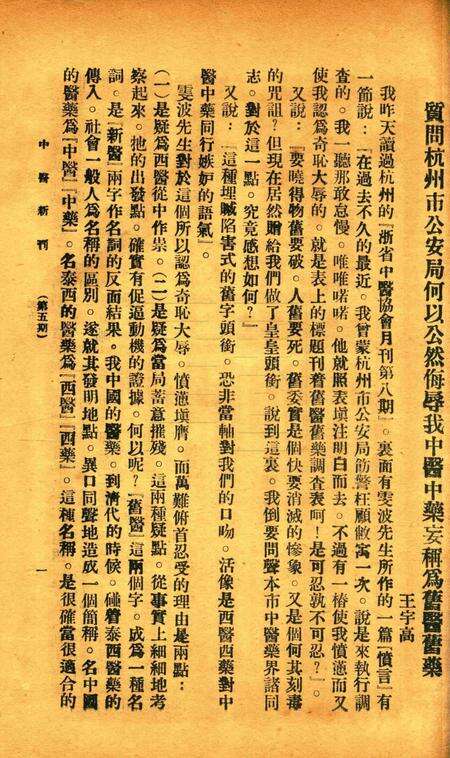 質問杭州市公安局何以公然侮辱我中醫中藥妄稱爲舊醫舊藥
王宇高
我昨天讀過杭州的『浙省中醫協會月刊第八期』。裏面有雯波先生所作的一篇『憤言』有
一節說：『在過去不久的最近。我曾蒙杭州市公安局飭警枉顧敝寓一次。說是來執行調
查的。我一聽那敢怠慢。唯唯喏喏。他就照表塡注明白而去。不過有一樁使我憤懣而又
使我認爲奇恥大辱的。就是表上的標題刊着舊醫舊藥調查表呵！是可忍孰不可忍？』。
又說：『要曉得物舊要破。人舊要死。舊委實是個快要消滅的慘象。又是個何其刻毒
的咒詛？但現在居然贈給我們做了皇皇頭銜。說到這裏。我倒要問聲本市中醫藥界諸同
志。對於這一點。究竟感想如何？』
又說：『這種埋贓陷害式的舊字頭銜。恐非當軸對我們的口吻。活像是西醫西藥對中
醫中藥同行嫉妒的語氣』。
雯波先生對於這個所以認爲奇恥大辱。憤懣塡膺。而萬難俯首忍受的理由是兩點：
(一)是疑爲西醫從中作祟。(二)是疑爲當局蓄意摧殘。這兩種疑點。從事實上細細地考
察起來。他的出發點。確實有促逼動機的證據。何以呢？『舊醫』這兩個字。成爲一種名
詞。是『新醫』兩字作名詞的反面結果。我中國的醫藥。到清代的時候。碰着泰西醫藥的
傳入。社會一般人爲名稱的區別。遂就其發明地點。異口同聲地造成一個簡稱。名中國
的醫藥爲『中醫』『中藥』。名泰西的醫藥爲『西醫』『西藥』。這種名稱。是很確當很適合的
中醫新刊
(第五期)
一